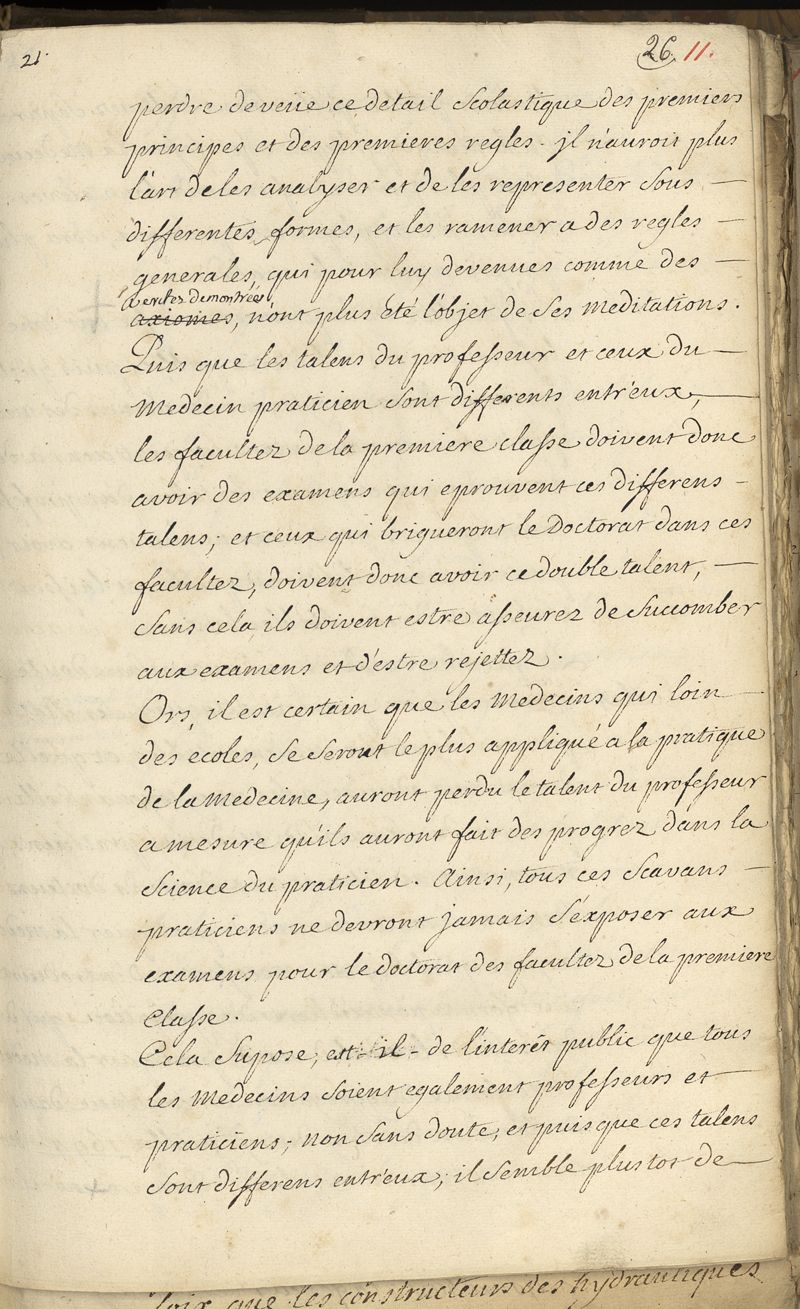 21.
26. 11.
perdre de veüe ce detail Scolastique des premiers
principes et des premieres regles. jl n'auroit plus
l'art de les analyser et de les representer Sous —
differentes formes, et les ramener a des regles —
generales, qui pour luy devenues comme des —
veritez demontrées
axiomes, n'ont plus été l'objet de Ses Meditations.
Puis que les talens du professeur et ceux du —
Medecin praticien Sont differents entr'eux, —
les facultez de la premiere classe doivent donc
avoir des examens qui eprouvent ces differens -
talens; et ceux qui brigueront le Doctorat dans ces
facultez, doivent donc avoir ce double talent, —
Sans cela ils doivent estre asseurez de Succomber
aux examens et d'estre rejettez.
Ors, il est certain que les Medecins qui loin —
des ecoles, Se Seront le plus appliqué a la pratique
de la Medecine, auront perdu le talent du professeur
a mesure qu'ils auront fait des progrez dans la
Science du praticien. Ainsi, tous ces Scavans —
praticiens ne devront jamais S'exposer aux
examens pour le doctorat des facultez de la premiere
Classe.
Cela Supose, est-il de l'interêt public que tous
les Medecins Soient egalement professeurs et —
praticiens; non Sans doute; et puisque ces talens
Sont differens entr'eux; il Semble plustot de —
que les constructeurs des hydrauliques